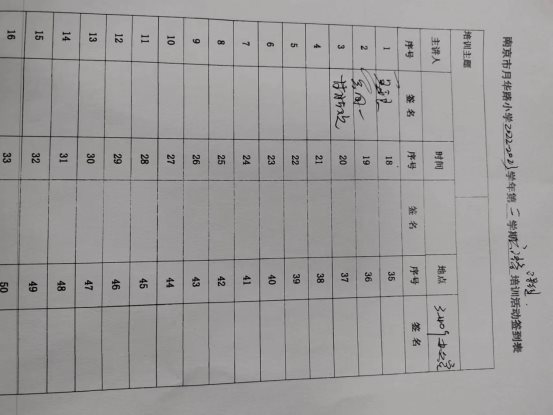 南京市月华路小学2022-2023学年第二学期 课程 培训活动签到表
培训主题
主讲人 时间 地点 3-409办公室
序号 签名 序号 签名 序号 签名
1 18 35
2 19 36
3 20 37
4 21 38
5 22 39
6 23 40
7 24 41
8 25 42
9 26 43
10 27 44
11 28 45
12 29 46
13 30 47
14 31 48
15 32 49
16 33 50